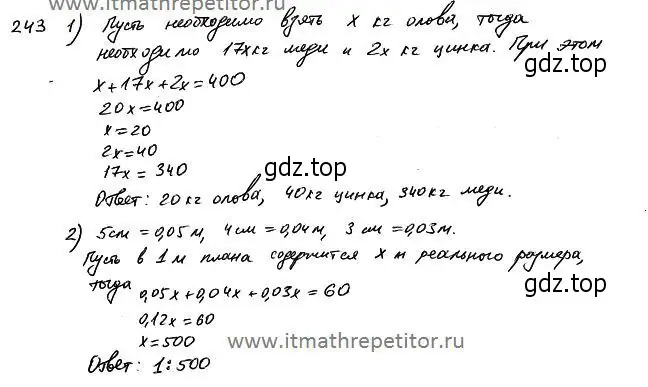 243 1) Пусть необходимо взять x кг олова, тогда
необходимо 17x кг меди и 2x кг цинка. При этом
x+17x+2x=400
gdz.top
20x=400
x=20
2x=40
gdz.top
17x = 340
Ответ: 20 кг олова, 40 кг цинка, 340 кг меди.
2) 5см = 0,05 м, 4 см = 0,04 м, 3 см = 0,03 м.
Пусть в 1 м плана содержится x м реального размера,
тогда
0,05x + 0,04x + 0,03x = 60
gdz.top
0,12x = 60
www.itmathrepetitor.ru
www.itmathrepetitor.ru
x = 500
Ответ: 1:500
gdz.top